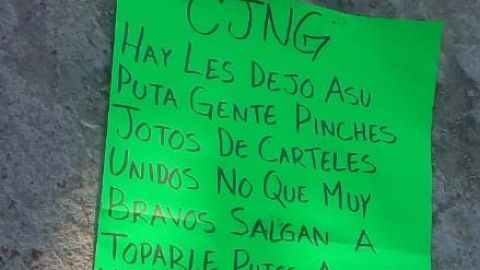 CJNG
HAY LES DEJO ASU
PUTA GENTE PINCHES
JOTOS DE CARTELES
UNIDOS NO QUE MUY
BRAVOS SALGAN A
TOPARLE